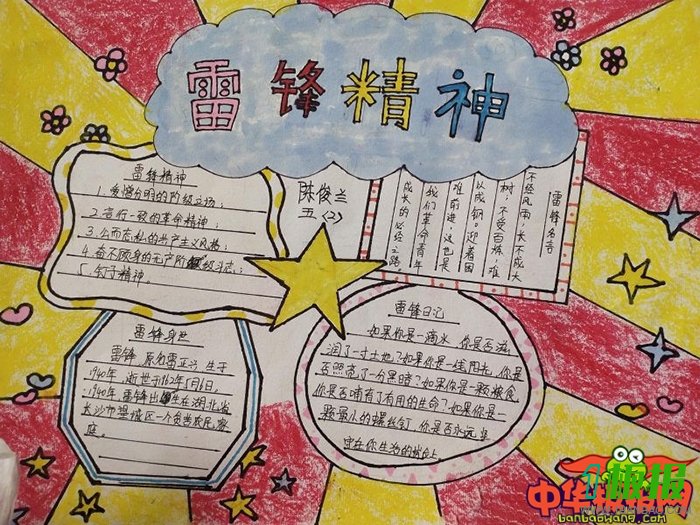 雷锋精神
陈俊兰
五(2)
雷锋精神
1.爱憎分明的阶级立场;
2.言行一致的革命精神;
3.公而忘私的共产主义风格
4.奋不顾身的无产阶级斗志;
5.钉子精神。
雷锋名言
不经风雨,长不成大
树,不受百炼,难
以成钢。迎着困
难前进,这也是
我们革命青年
成长的必经之路。
雷锋身世
雷锋 原名雷正兴 生于
1940年 逝世于1962年
1940年 雷锋出生在湖北省
长沙市望城区一个贫苦农民家
庭。
雷锋日记
如果你是一滴水 你是否滋
润了一寸土地?如果你是一线阳光,你是
否照亮了一分黑暗?如果你是一颗粮食
你是否哺育了有用的生命?如果你是一
颗最小的螺丝钉 你是否永远坚
守在你生活的岗位上
banbaowang.com